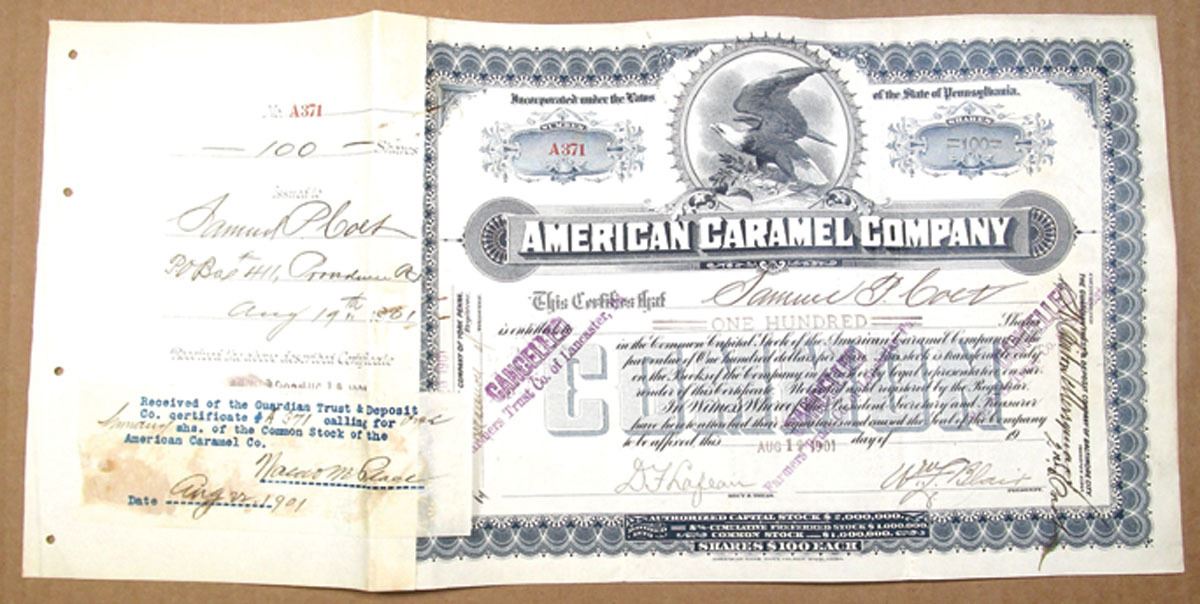 No. A371
100 Shares
Issued to
Samuel P. Colt
PO Box 411, Providence R
Aug 19th 1901
Received the above described Certificate
Received of the Guardian Trust & Deposit
Co. certificate # A 371 calling for One
shs. of the Common Stock of the
American Caramel Co.
Date Aug 22 1901
Incorporated under the Laws of the State of Pennsylvania.
NUMBER
A371
SHARES
100
AMERICAN CARAMEL COMPANY
This Certifies that Samuel P. Colt
is entitled to ONE HUNDRED Shares
in the Common Capital Stock of the American Caramel Company of the
par value of One hundred dollars per share. This stock is transferable only
on the Books of the Company in person or by legal representative on sur-
render of this Certificate. Not valid until registered by the Registrar.
In Witness Whereof the President Secretary and Treasurer
have hereto attached their signatures and caused the Seal of the Company
to be affixed this AUG 19 1901 day of 19
COMMON
CANCELLED
Trust Co. of Lancaster,
CANCELLED
Farmers
CANCELLED
COMPANY OF YORK PENNA.
Registrar
by
D F Lafean
SEC'Y & TREAS.
Wm F. Blair
PRESIDENT.
AUTHORIZED CAPITAL STOCK $2,000,000.
8% CUMULATIVE PREFERRED STOCK $1,000,000
COMMON STOCK $1,000,000.
SHARES $100 EACH